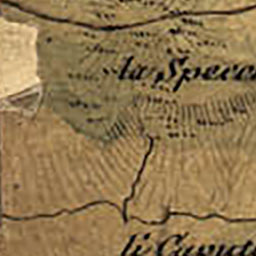 la Specc
li Caput